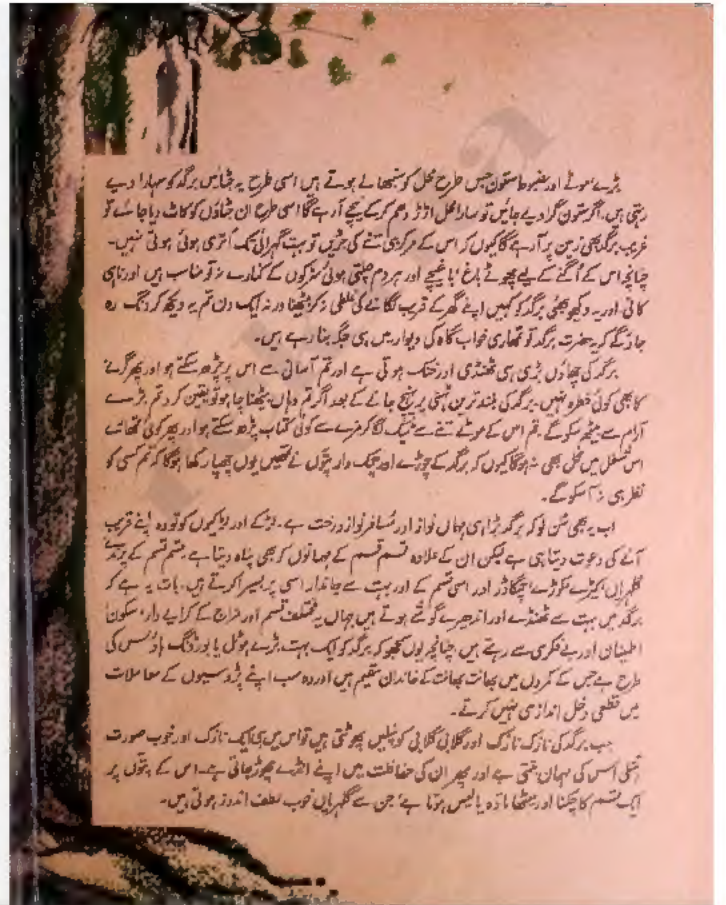 بڑے موٹے اور مضبوط ستون جس طرح محل کو سنبھالے ہوتے ہیں اسی طرح یہ جٹائیں برگد کو سہارا دیے
رہتی ہیں۔ اگر ستون گرا دیے جائیں تو سارا محل اڑاڑا دھم کر کے نیچے آ رہے گا اسی طرح ان جٹاؤں کو کاٹ دیا جائے تو
غریب برگد بھی زمین پر آ رہے گا کیوں کہ اس کے مرکزی تنے کی جڑیں تو بہت گہرائی تک اُتری ہوئی ہوتی نہیں۔
چنانچہ اس کے اُگنے کے لیے چھوٹے باغ، باغیچے اور ہر دم چلتی ہوئی سڑکوں کے کنارے نہ تو مناسب ہیں اور نا ہی
کافی۔ اور یہ دیکھو بھئی برگد کو کہیں اپنے گھر کے قریب لگانے کی غلطی نہ کر بیٹھنا ورنہ ایک دن تم یہ دیکھ کر دنگ رہ
جاؤ گے کہ یہ حضرت برگد تو تمھاری خواب گاہ کی دیوار میں ہی جگہ بنا رہے ہیں۔
برگد کی چھاؤں بڑی ہی ٹھنڈی اور خنک ہوتی ہے اور تم آسانی سے اس پر چڑھ سکتے ہو اور پھر گرنے
کا بھی کوئی خطرہ نہیں۔ برگد کی بلند ترین ٹہنی پر پہنچ جانے کے بعد اگر تم وہاں بیٹھنا چاہو تو یقین کرو تم بڑے
آرام سے بیٹھ سکو گے۔ تم اس کے موٹے تنے سے ٹیک لگا کر مزے سے کوئی کتاب پڑھ سکتے ہو اور پھر کوئی تمھارے
اس شغل میں مخل بھی نہ ہوگا کیوں کہ برگد کے چوڑے اور چمک دار پتّوں نے تمھیں یوں چھپا رکھا ہوگا کہ تم کسی کو
نظر ہی نہ آ سکو گے۔
اب یہ بھی سُن لو کہ برگد بڑا ہی مہماں نواز اور مُسافر نواز درخت ہے۔ لڑکے اور لڑکیوں کو تو وہ اپنے قریب
آنے کی دعوت دیتا ہی ہے لیکن ان کے علاوہ قسم قسم کے مہمانوں کو بھی پناہ دیتا ہے۔ قسم قسم کے پرندے
گلہریاں، کیڑے مکوڑے، چمگادڑ اور اسی قسم کے اور بہت سے جاندار اسی پر بسیرا کرتے ہیں۔ بات یہ ہے کہ
برگد میں بہت سے ٹھنڈے اور اندھیرے گوشے ہوتے ہیں جہاں یہ مختلف قسم اور مزاج کے کرایے دار، سکون
اطمینان اور بے فکری سے رہتے ہیں۔ چنانچہ یوں سمجھو کہ برگد کو ایک بہت بڑے ہوٹل یا بورڈنگ ہاؤس کی
طرح ہے جس کے کمروں میں بھانت بھانت کے خاندان مقیم ہیں اور وہ سب اپنے پڑوسیوں کے معاملات
میں قطعی دخل اندازی نہیں کرتے۔
جب برگد کی نازک نازک اور گلابی گلابی کونپلیں پھوٹتی ہیں تو اس میں ہی ایک نازک اور خوب صورت
تتلی اُس کی مہمان بنتی ہے اور پھر ان کی حفاظت میں اپنے انڈے چھوڑ جاتی ہے۔ اس کے پتّوں پر
ایک قسم کا چکنا اور میٹھا مادّہ یا لیس ہوتا ہے جن سے گلہریاں خوب لطف اندوز ہوتی ہیں۔